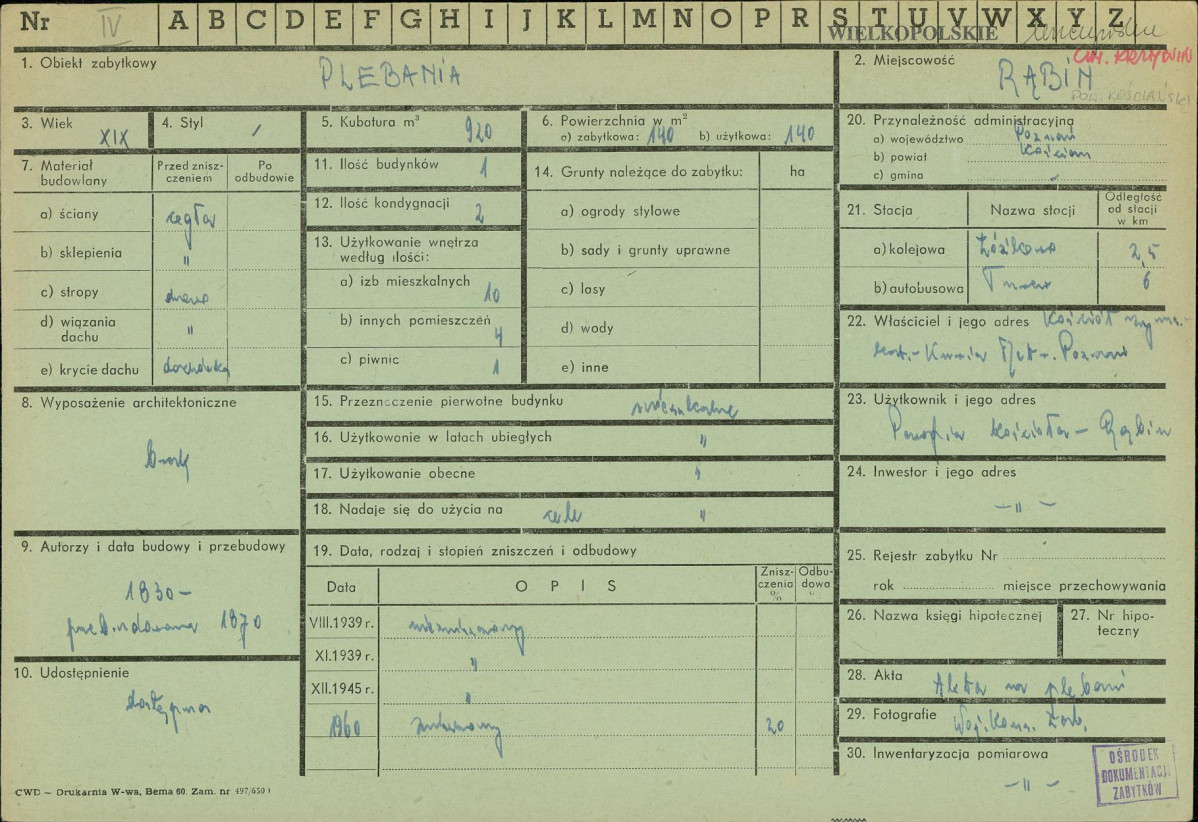 Nr IV A B C D E F G H I J K L M N O P R S T U V W X Y Z
WIELKOPOLSKIE
GM. KRZYWIŃ
1. Obiekt zabytkowy PLEBANIA
2. Miejscowość RĄBIŃ
POW. KOŚCIAŃSKI
3. Wiek XIX
4. Styl /
5. Kubatura m³ 920
6. Powierzchnia w m²
a) zabytkowa: 140 b) użytkowa: 140
20. Przynależność administracyjna
a) województwo Poznań
b) powiat Kościan
c) gmina
7. Materiał budowlany
Przed znisz-
czeniem
Po
odbudowie
a) ściany cegła
b) sklepienia "
c) stropy drewno
d) wiązania
dachu "
e) krycie dachu dachówka
11. Ilość budynków 1
12. Ilość kondygnacji 2
13. Użytkowanie wnętrza
według ilości:
a) izb mieszkalnych 10
b) innych pomieszczeń 4
c) piwnic 1
14. Grunty należące do zabytku: ha
a) ogrody stylowe
b) sady i grunty uprawne
c) lasy
d) wody
e) inne
21. Stacja Nazwa stacji
Odległość
od stacji
w km
a) kolejowa 2,5
b) autobusowa Turew 6
22. Właściciel i jego adres Kościół rzyms.-
kat. - Kuria Met. - Poznań
8. Wyposażenie architektoniczne
brak
15. Przeznaczenie pierwotne budynku mieszkalne
16. Użytkowanie w latach ubiegłych "
17. Użytkowanie obecne "
18. Nadaje się do użycia na cele "
23. Użytkownik i jego adres
Parafia kościoła - Rąbiń
24. Inwestor i jego adres
- " -
9. Autorzy i data budowy i przebudowy
1830 -
przebudowana 1870
10. Udostępnienie
dostępna
19. Data, rodzaj i stopień zniszczeń i odbudowy
Data OPIS
Znisz-
czenia
%
Odbu-
dowa
%
VIII.1939 r. niezniszczony
XI.1939 r. "
XII.1945 r. "
1960 zniszczony 20
25. Rejestr zabytku Nr
rok miejsce przechowywania
26. Nazwa księgi hipotecznej
27. Nr hipo-
teczny
28. Akta Akta na plebanii
29. Fotografie Woj. Kons. Zab.
30. Inwentaryzacja pomiarowa
- " -
OŚRODEK
DOKUMENTACJI
ZABYTKÓW
CWD – Drukarnia W-wa, Bema 60. Zam. nr 497/650